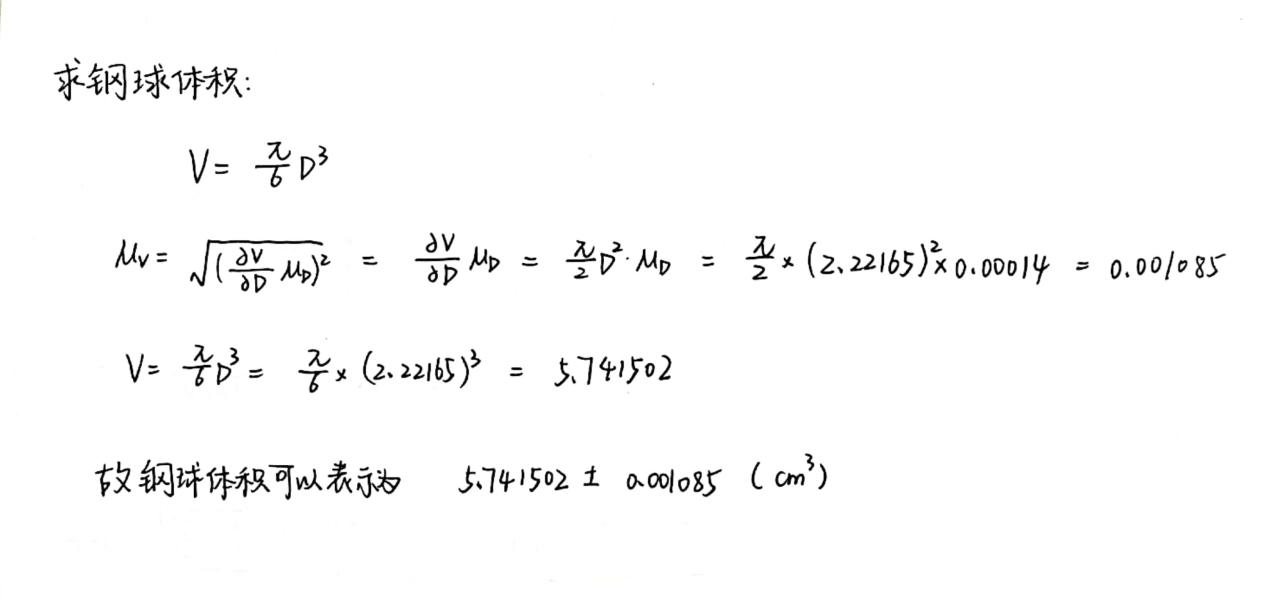 求钢球体积:
V = π/6 D³
μ_V = √((∂V/∂D μ_D)²) = ∂V/∂D μ_D = π/2 D² · μ_D = π/2 × (2.22165)² × 0.00014 = 0.001085
V = π/6 D³ = π/6 × (2.22165)³ = 5.741502
故钢球体积可以表示为 5.741502 ± 0.001085 (cm³)